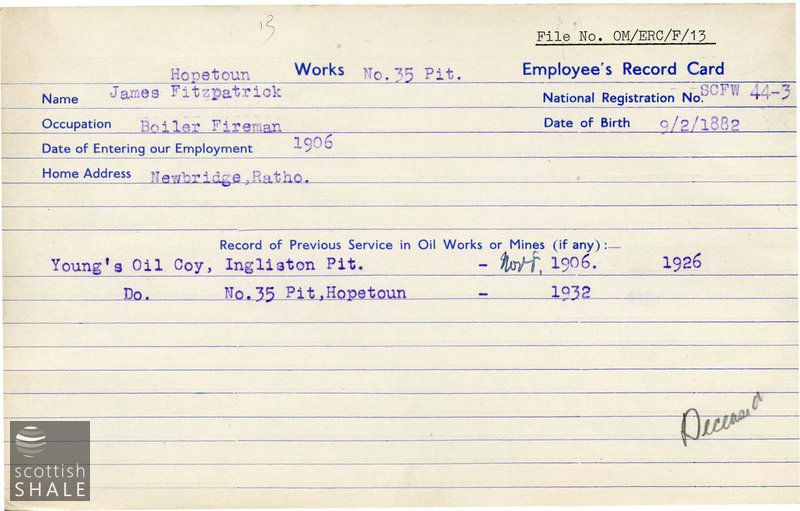 13
File No. OM/ERC/F/13
Hopetoun Works No.35 Pit. Employee's Record Card
Name James Fitzpatrick National Registration No. SCFW 44-3
Occupation Boiler Fireman Date of Birth 9/2/1882
Date of Entering our Employment 1906
Home Address Newbridge,Ratho.
Record of Previous Service in Oil Works or Mines (if any):—
Young's Oil Coy, Ingliston Pit. - Novr, 1906. 1926
Do. No.35 Pit,Hopetoun - 1932
Deceased
scottish
SHALE